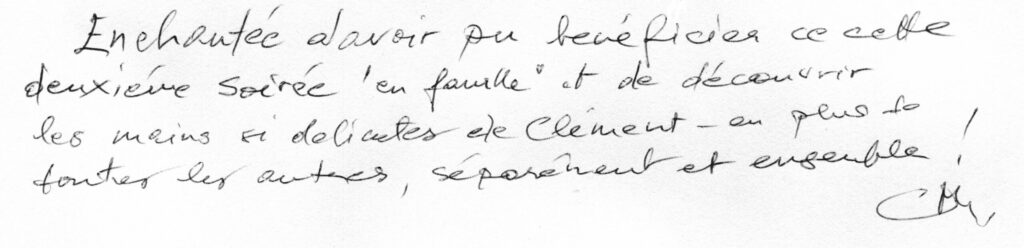 Enchantée d'avoir pu bénéficier de cette
deuxième soirée "en famille" et de découvrir
les mains si délicates de Clément - en plus de
toutes les autres, séparément et ensemble !